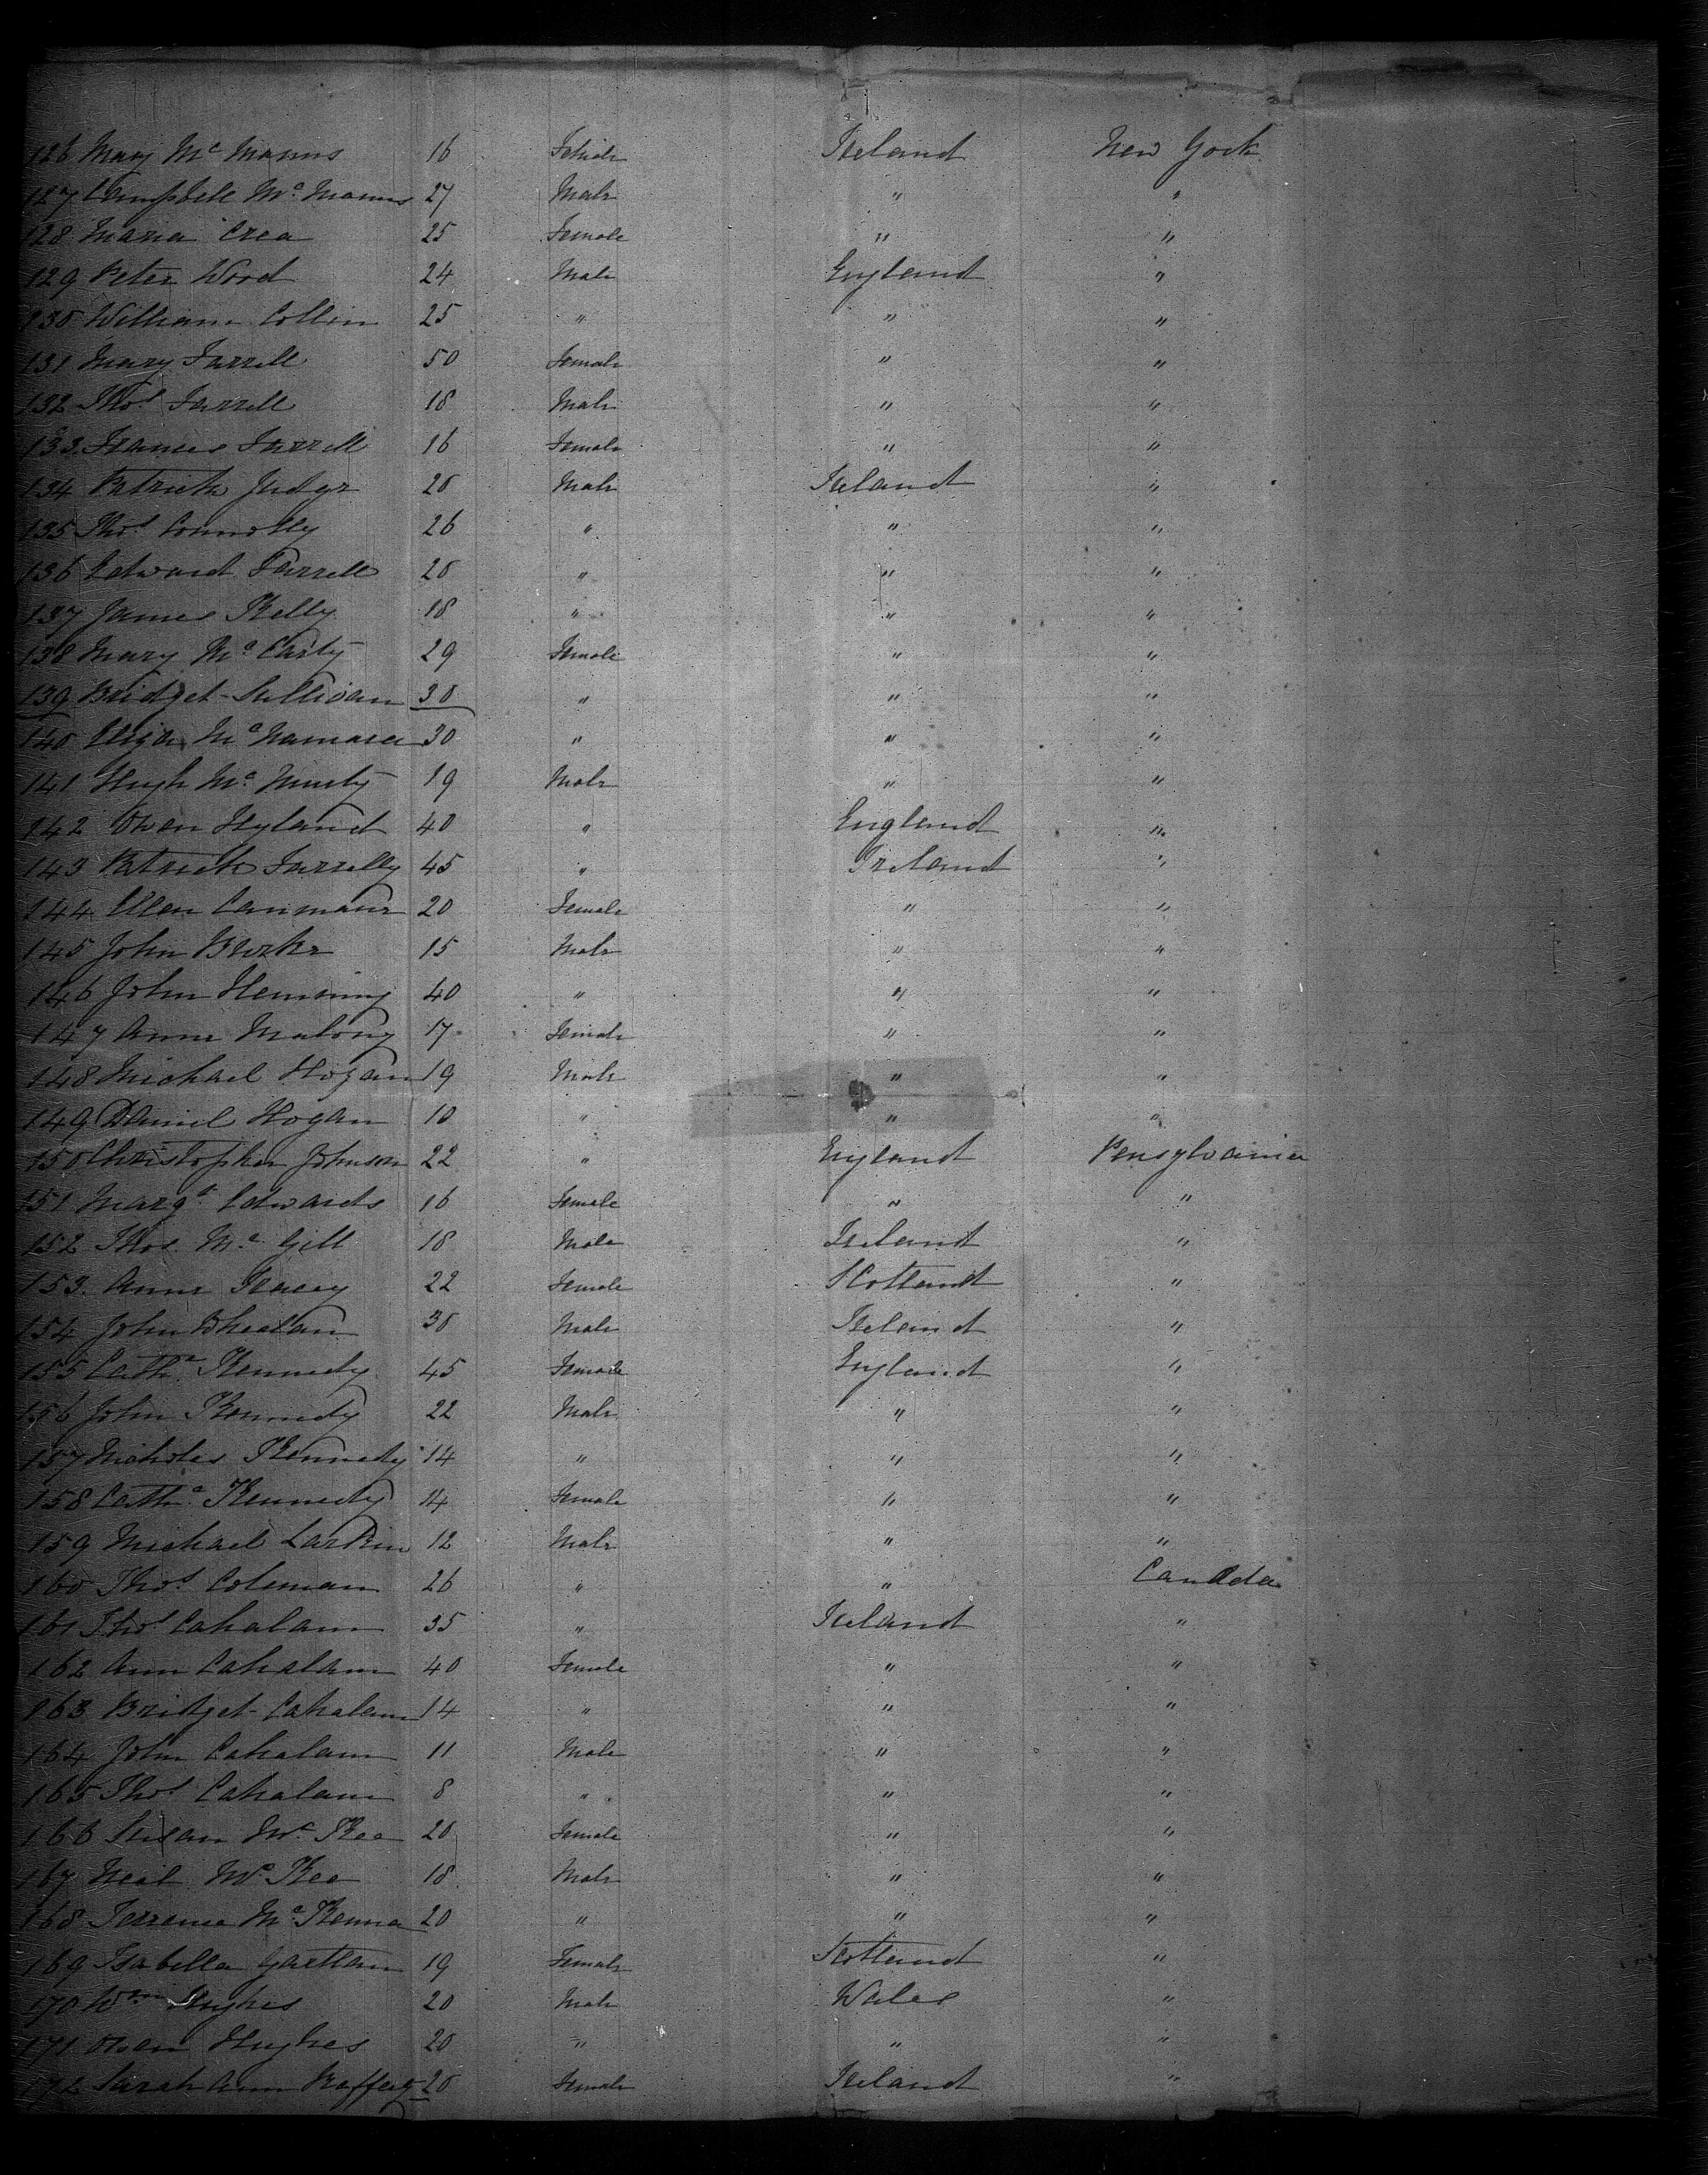 126 Mary Mc Manus 16 Female Ireland New York
127 Campbell Mc Manus 27 Male " "
128 Maria Crea 25 Female " "
129 Peter Wood 24 Male England "
130 William Collin 25 " " "
131 Mary Farrell 50 Female " "
132 Thos Farrell 18 Male " "
133 Frances Farrell 16 Female " "
134 Patrick Judge 20 Male Ireland "
135 Thos Connolly 26 " " "
136 Edward Farrell 20 " " "
137 James Kelly 18 " " "
138 Mary Mc Carty 29 Female " "
139 Bridget Sullivan 30 " " "
140 Eliza Mc Namara 30 " " "
141 Hugh Mc Minty 19 Male " "
142 Owen Hyland 40 " England "
143 Patrick Farrelly 45 " Ireland "
144 Ellen 20 Female " "
145 John Burke 15 Male " "
146 John Hemming 40 " " "
147 Anne Malony 17 Female " "
148 Michael Hogan 19 Male " "
149 Daniel Hogan 10 " " "
150 Christopher Johnson 22 " England Pensylvania
151 Margt Edwards 16 Female " "
152 Thos Mc Gill 18 Male Ireland "
153 Anne 22 Female Scotland "
154 John Whealan 30 Male Ireland "
155 Cathe Kennedy 45 Female England "
156 John Kennedy 22 Male " "
157 Nicholas Kennedy 14 " " "
158 Cathe Kennedy 14 Female " "
159 Michael Larkin 12 Male " "
160 Thos Coleman 26 " " Canada
161 Thos Cahalann 35 " Ireland "
162 Ann Cahalann 40 Female " "
163 Bridget Cahalann 14 " " "
164 John Cahalann 11 Male " "
165 Thos Cahalann 8 " " "
166 Susan Mc Kee 20 Female " "
167 Neal Mc Kee 18 Male " "
168 Terrence Mc Kenna 20 " " "
169 Isabella Gartlan 19 Female Scotland "
170 Wm Hughes 20 Male Wales "
171 Owen Hughes 20 " " "
172 Sarah Ann Rafferty 20 Female Ireland "